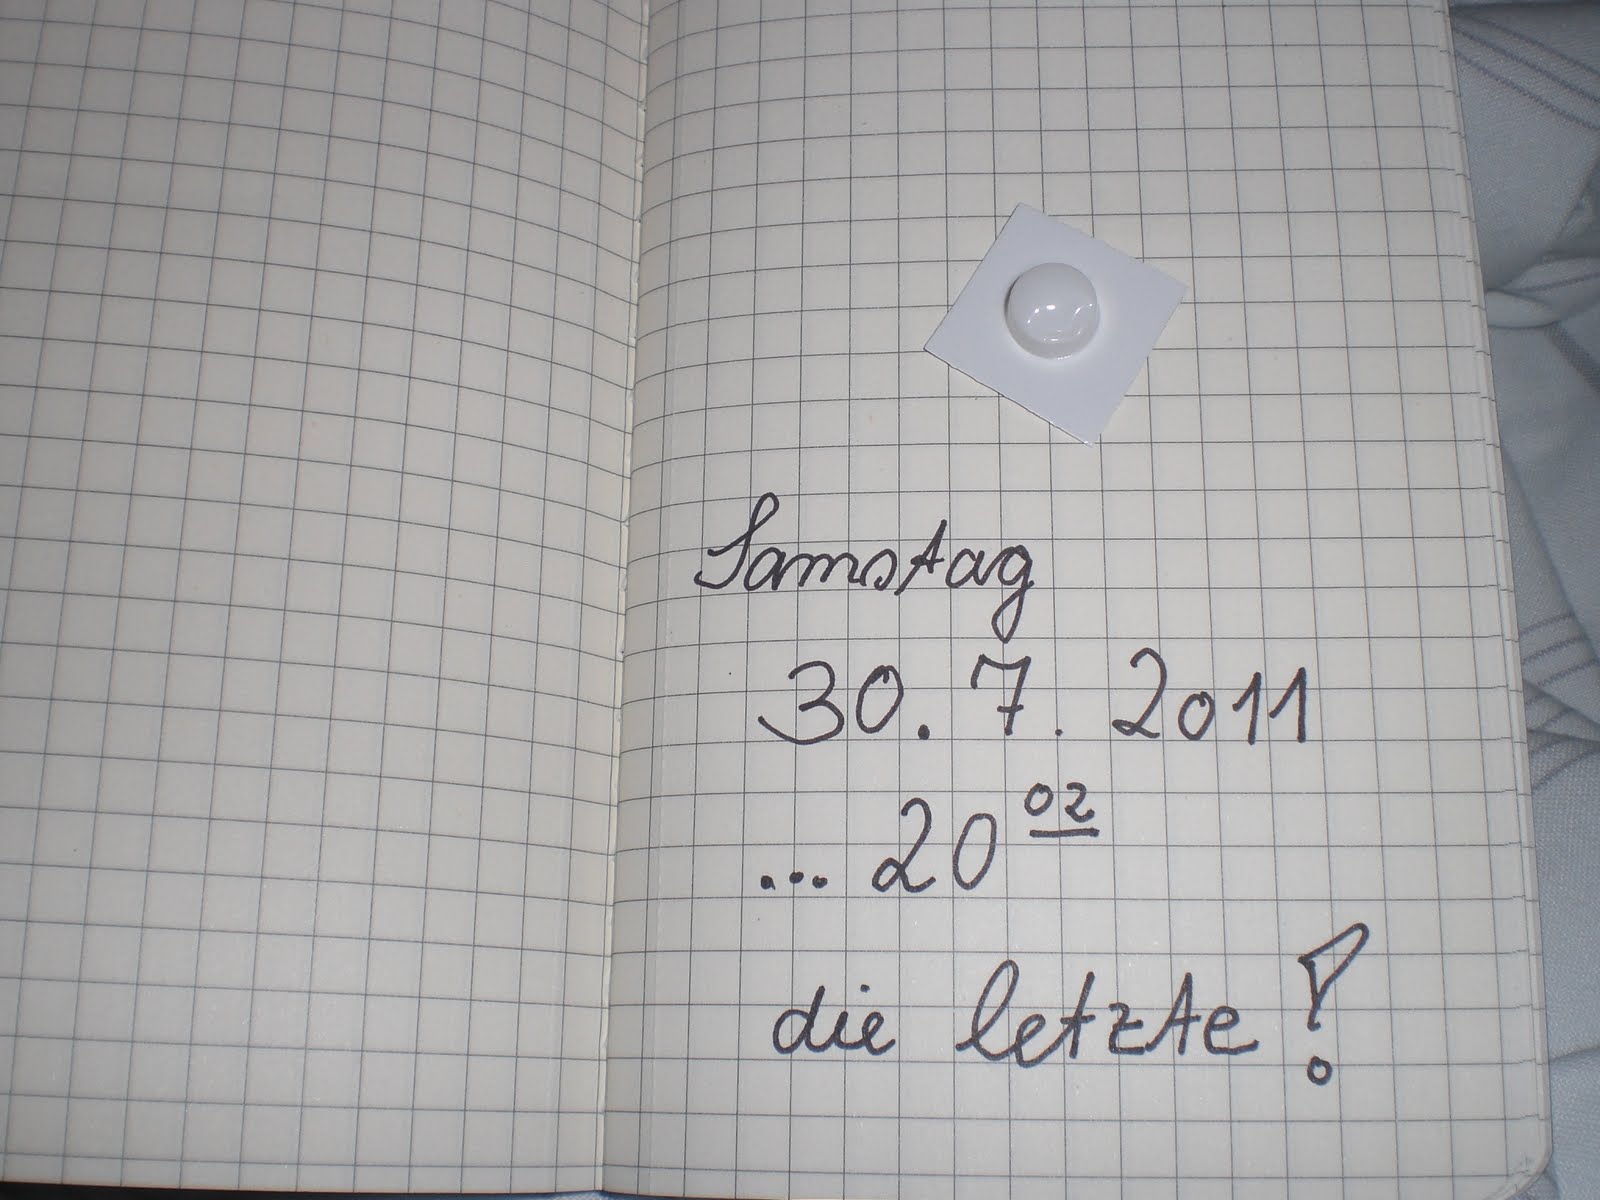 Samstag
30. 7. 2011
... 20 02
die letzte!